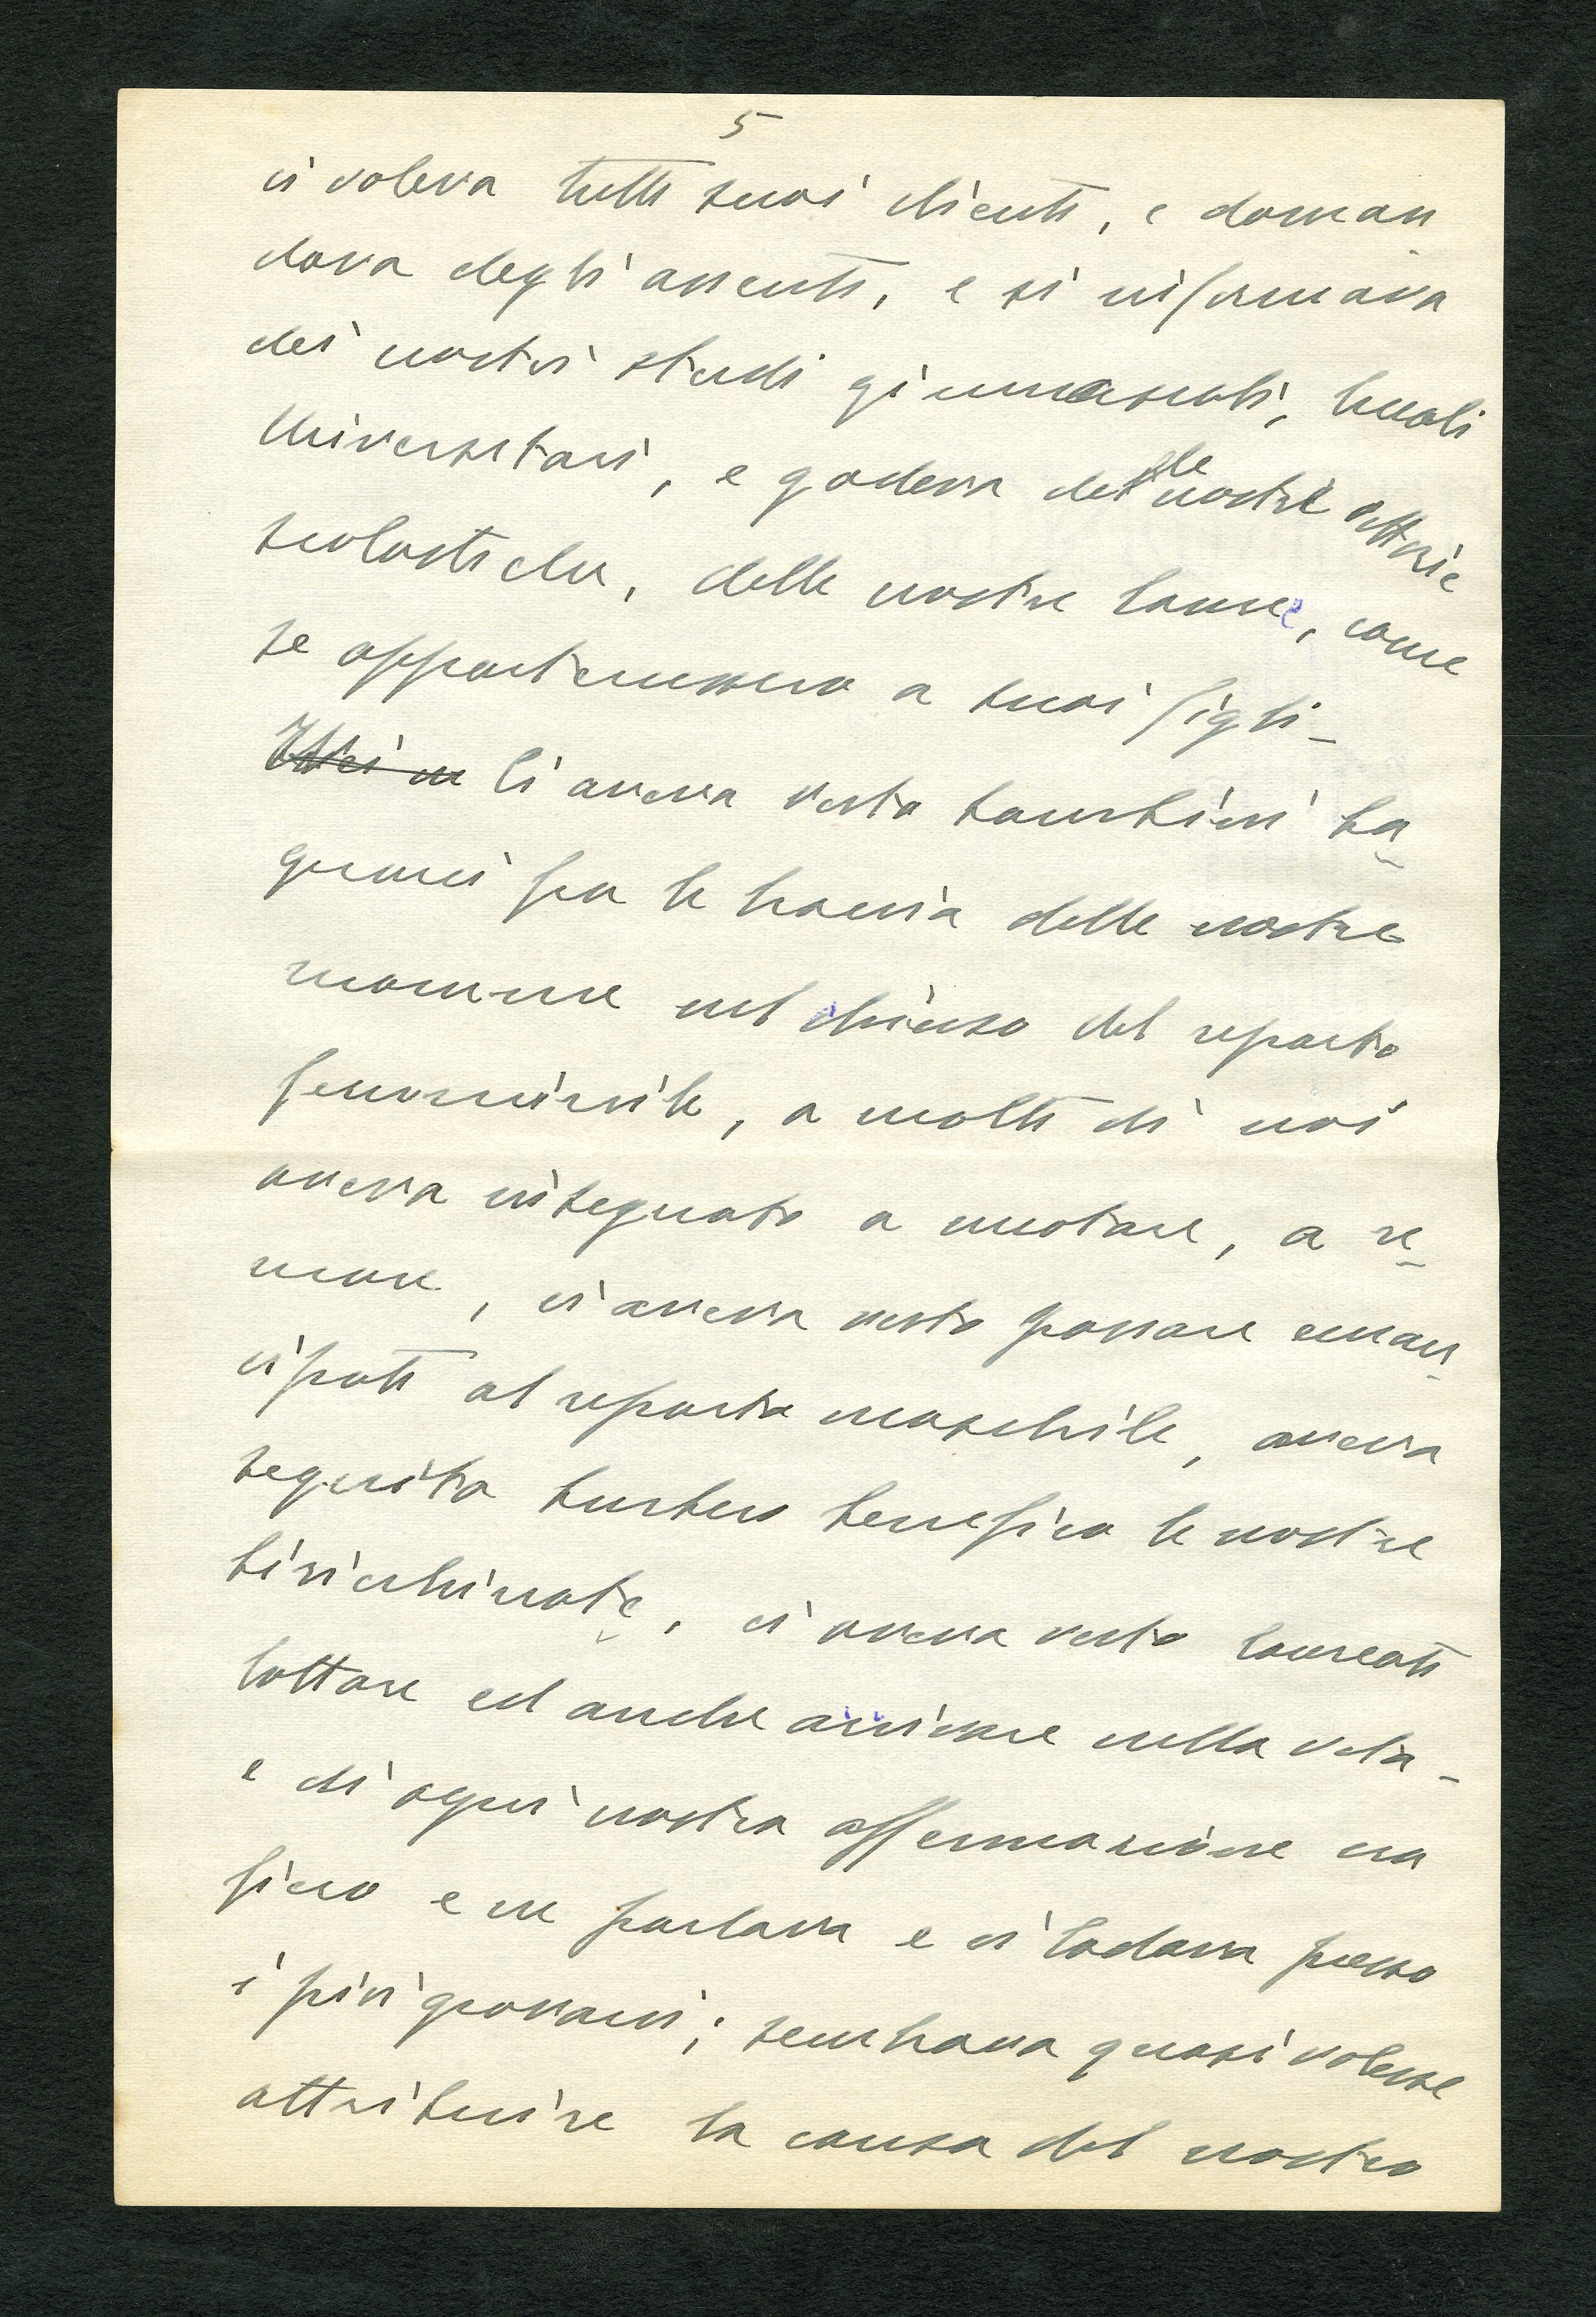 5
ci voleva tutti suoi clienti, e doman
dava degli assenti, e si informava
dei nostri studi ginnasiali, liceali
Universitari, e godeva delle nostre vittorie
scolastiche, delle nostre lauree, come
se appartenessero a suoi figli_
li aveva visto bambini ba_
gnarci fra le braccia delle nostre
mamme nel chiuso del reparto
femminile, a molti di noi
aveva insegnato a nuotare, a re_
mare, ci aveva visto passare eman_
cipati al reparto maschile, aveva
seguito burbero benefico le nostre
birichinate, ci aveva visto laureati
lottare ed anche arrivare nella vita_
e di ogni nostra affermazione era
fiero e ne parlava e ci lodava presso
i più giovani; sembrava quasi volesse
attribuire la causa del nostro